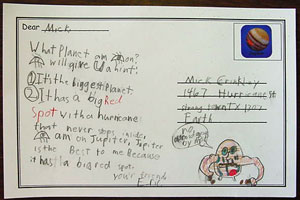 Dear Mick
What Planet am I on?
I will give U a hint:
① It's the biggest Planet
② It has a big Red
Spot with a hurricane
that never stops inside.
I am on Jupiter. Jupiter
is the Best to me Because
it has a big red spot.
your friend
Mick
1467 Hurricane St
TX
Earth